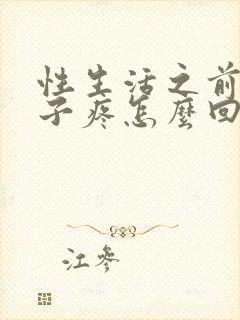 性生活之前
子疼怎麼回
江參